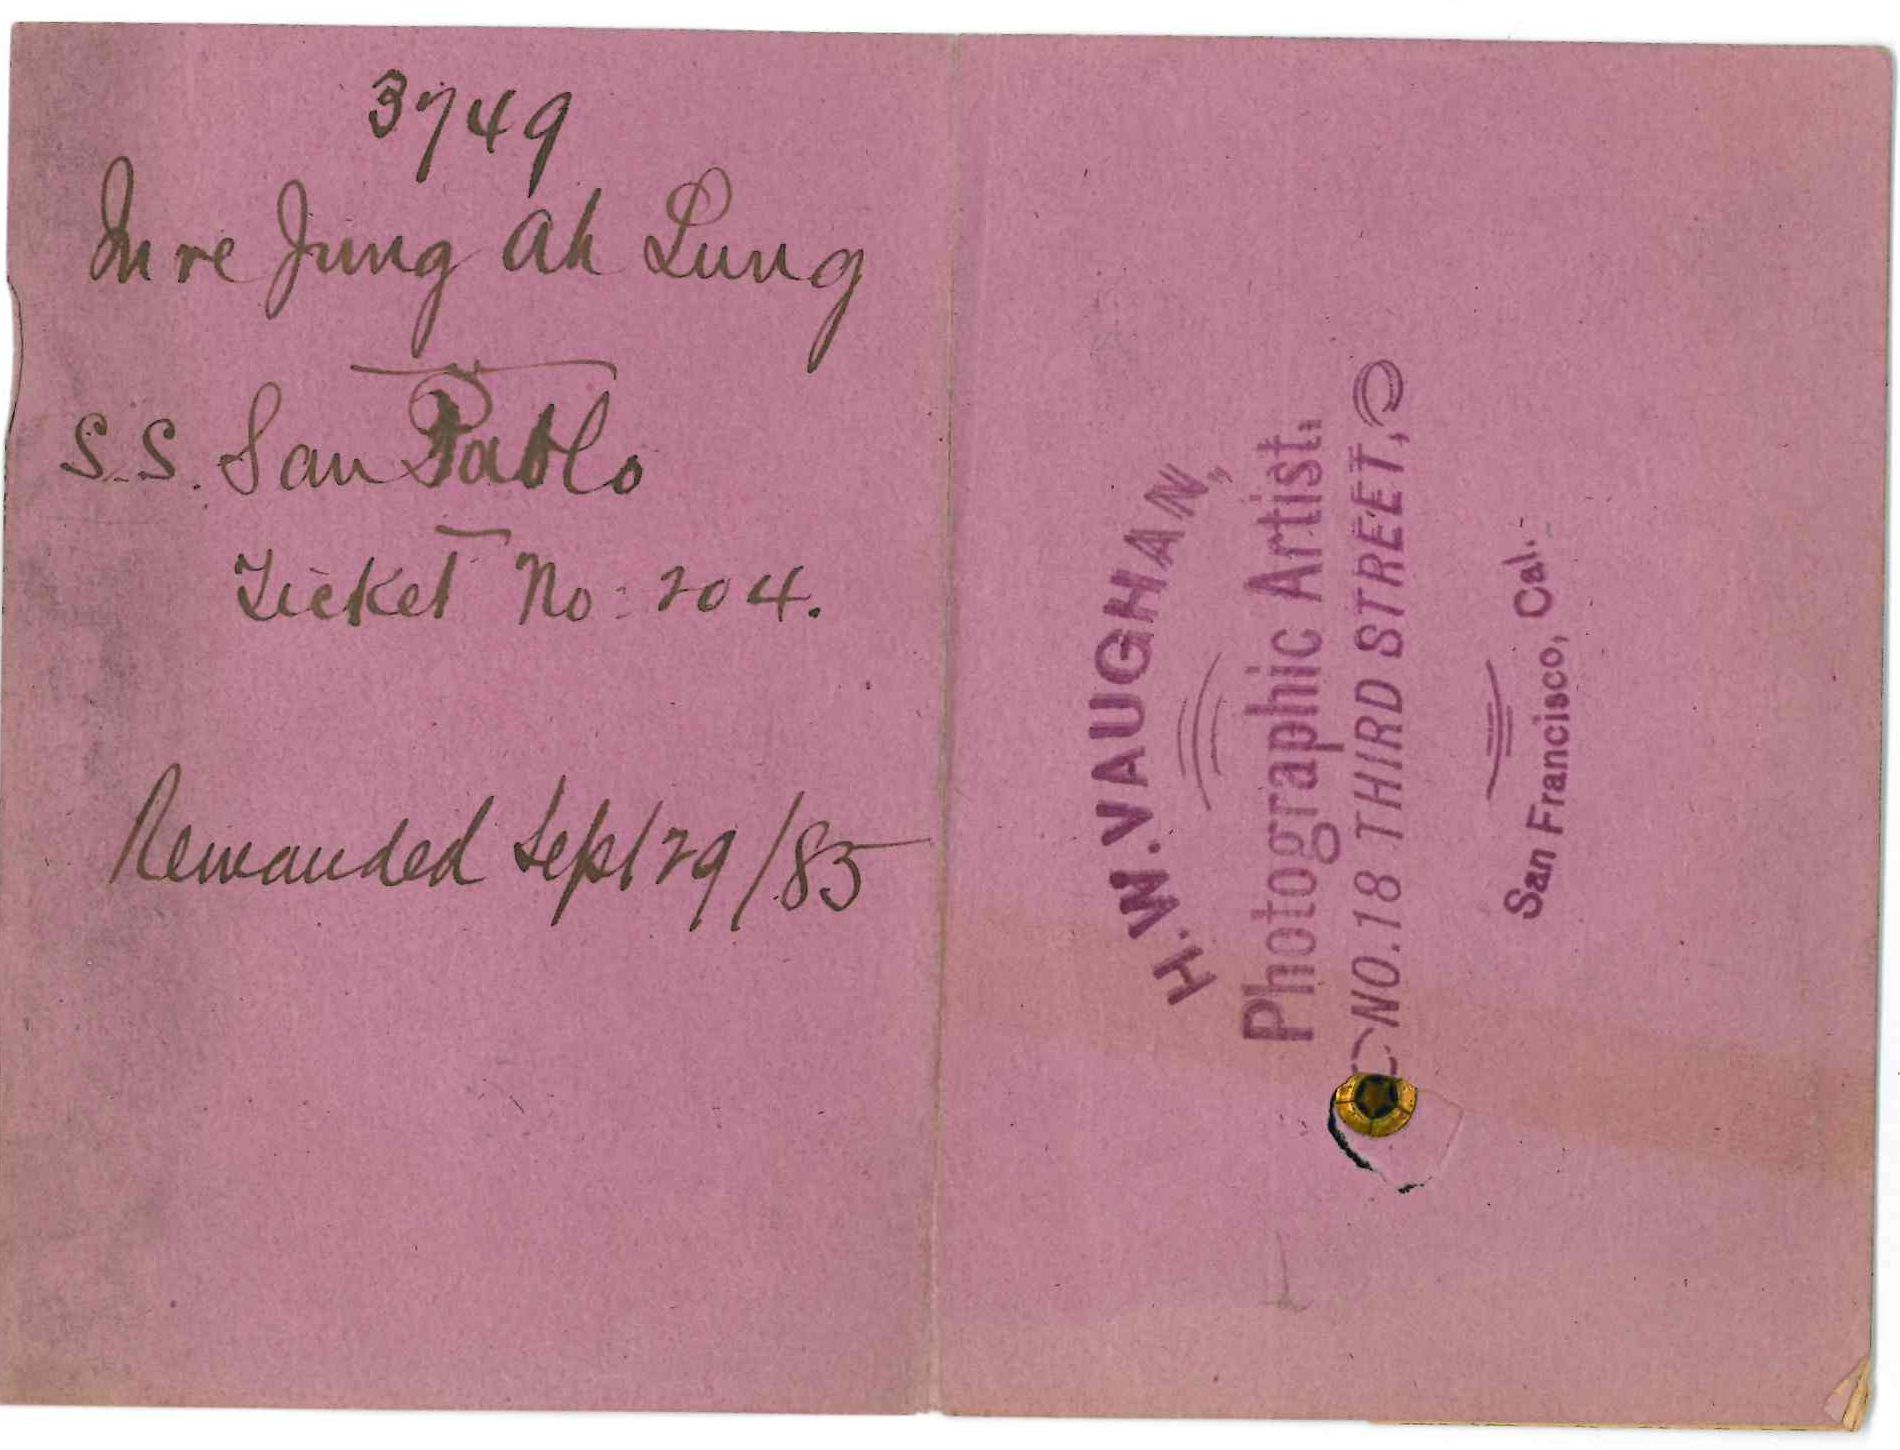 3749
In re Jung Ah Lung
S.S. San Pablo
Ticket No: 204.
Remanded Sept 29/85
H.W. VAUGHAN,
Photographic Artist.
NO. 18 THIRD STREET,
San Francisco, Cal.